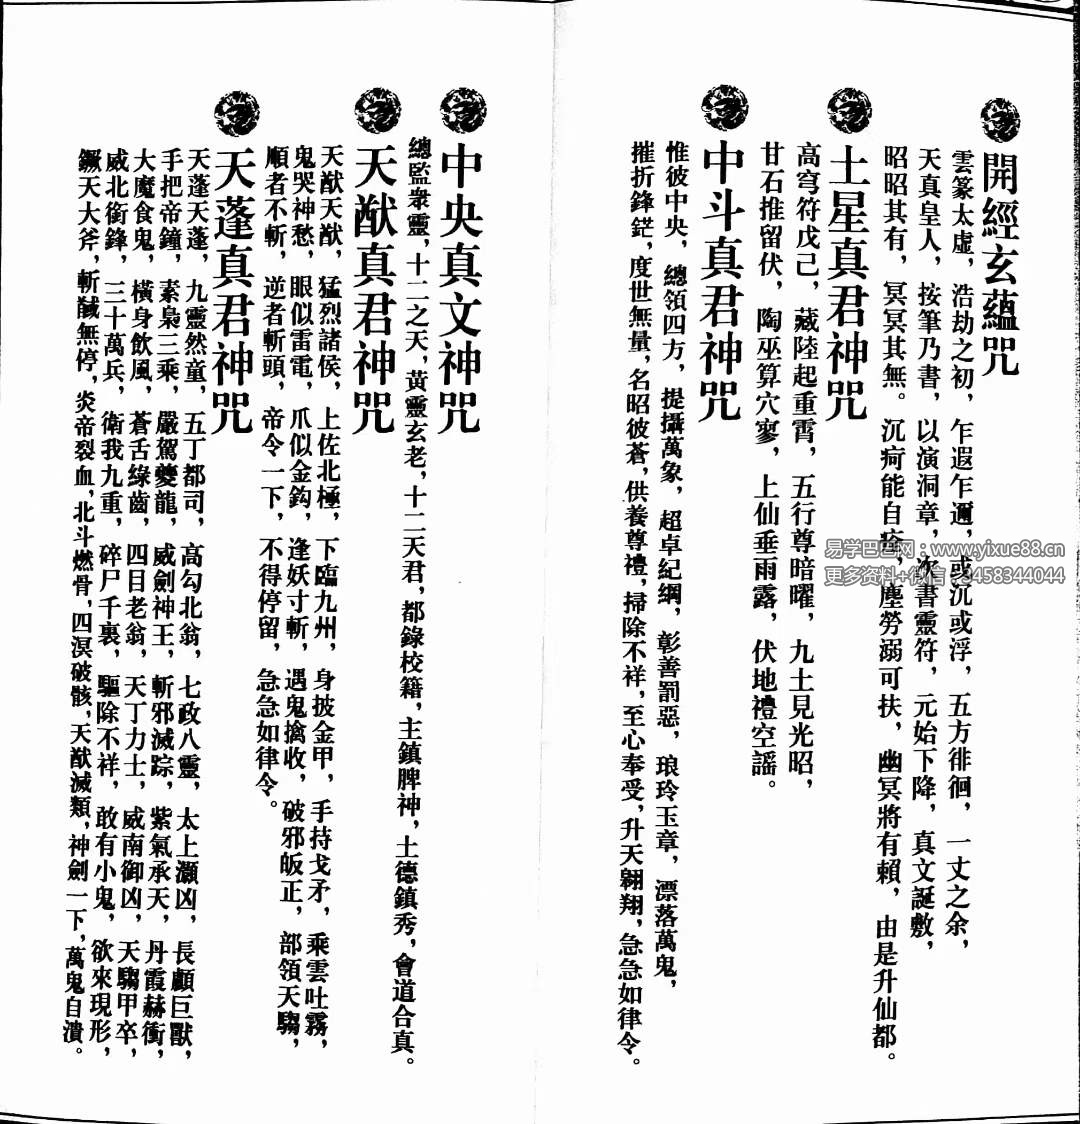 開經玄蘊咒
雲篆太虛，浩劫之初，乍遐乍邇，或沉或浮，五方徘徊，一丈之余，
天真皇人，按筆乃書，以演洞章，次書靈符，元始下降，真文誕敷，
昭昭其有，冥冥其無。沉疴能自痊，塵勞溺可扶，幽冥將有賴，由是升仙都。
土星真君神咒
高穹符戊己，藏陸起重霄，五行尊暗曜，九土見光昭，
甘石推留伏，陶巫算穴寥，上仙垂雨露，伏地禮空謡。
中斗真君神咒
惟彼中央，總領四方，提攝萬象，超卓紀綱，彰善罰惡，琅玲玉章，漂落萬鬼，
摧折鋒鋩，度世無量，名昭彼蒼，供養尊禮，掃除不祥，至心奉受，升天翱翔，急急如律令。
中央真文神咒
總監衆靈，十二之天，黃靈玄老，十二天君，都錄校籍，主鎮脾神，土德鎮秀，會道合真。
天猷真君神咒
天猷天猷，猛烈諸侯，上佐北極，下臨九州，身披金甲，手持戈矛，乘雲吐霧，
鬼哭神愁，眼似雷電，爪似金鈎，逢妖寸斬，遇鬼擒收，破邪皈正，部領天騶，
順者不斬，逆者斬頭，帝令一下，不得停留，急急如律令。
天蓬真君神咒
天蓬天蓬，九靈然童，五丁都司，高勾北翁，七政八靈，太上灝凶，長顱巨獸，
手把帝鐘，素梟三乘，嚴駕夔龍，威劍神王，斬邪滅踪，紫氣承天，丹霞赫衝，
大魔食鬼，橫身飲風，蒼舌綠齒，四目老翁，天丁力士，威南御凶，天騶甲卒，
威北銜鋒，三十萬兵，衛我九重，碎尸千裏，驅除不祥，敢有小鬼，欲來現形，
钁天大斧，斬馘無停，炎帝裂血，北斗燃骨，四溟破骸，天猷滅類，神劍一下，萬鬼自潰。
易学巴巴网：www.yixue88.cn
更多资料+微信：3458344044